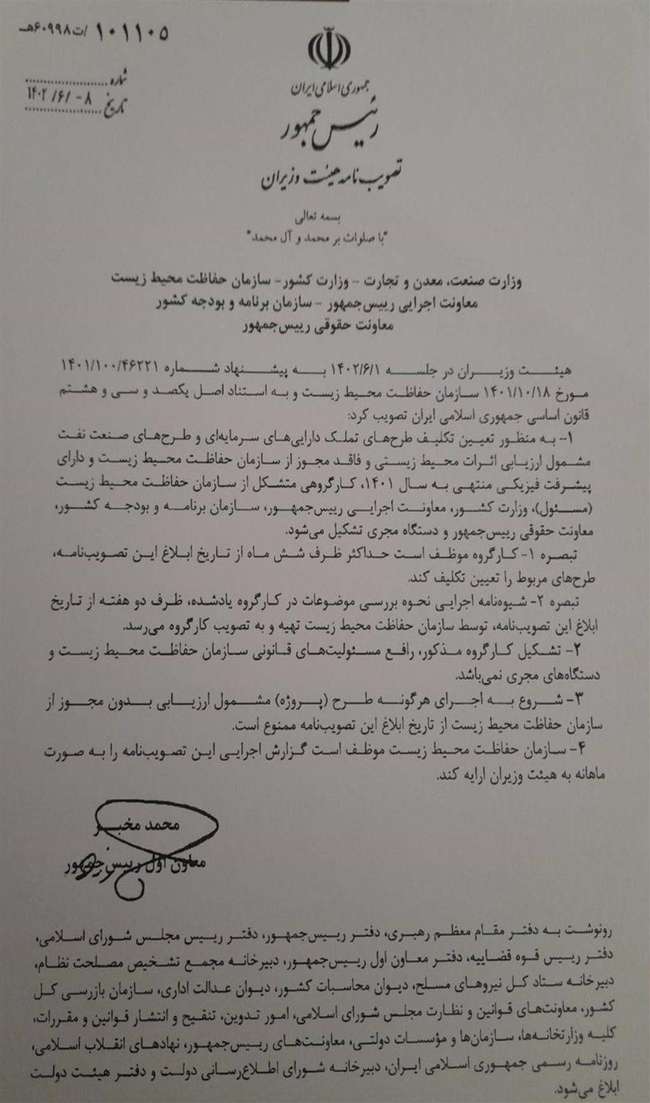 ۱۰۱۱۰۵/ت۶۰۹۹۸هـ
شماره
تاریخ ۱۴۰۲/۶/-۸
جمهوری اسلامی ایران
رئیس جمهور
تصویب نامه هیئت وزیران
بسمه تعالی
"با صلوات بر محمد و آل محمد"
وزارت صنعت، معدن و تجارت - وزارت کشور - سازمان حفاظت محیط زیست
معاونت اجرایی رییس‌جمهور - سازمان برنامه و بودجه کشور
معاونت حقوقی رییس‌جمهور
هیئت وزیران در جلسه ۱۴۰۲/۶/۱ به پیشنهاد شماره ۱۴۰۱/۱۰۰/۴۶۲۲۱
مورخ ۱۴۰۱/۱۰/۱۸ سازمان حفاظت محیط زیست و به استناد اصل یکصد و سی و هشتم
قانون اساسی جمهوری اسلامی ایران تصویب کرد:
۱- به منظور تعیین تکلیف طرح‌های تملک دارایی‌های سرمایه‌ای و طرح‌های صنعت نفت
مشمول ارزیابی اثرات محیط زیستی و فاقد مجوز از سازمان حفاظت محیط زیست و دارای
پیشرفت فیزیکی منتهی به سال ۱۴۰۱، کارگروهی متشکل از سازمان حفاظت محیط زیست
(مسئول)، وزارت کشور، معاونت اجرایی رییس‌جمهور، سازمان برنامه و بودجه کشور،
معاونت حقوقی رییس‌جمهور و دستگاه مجری تشکیل می‌شود.
تبصره ۱- کارگروه موظف است حداکثر ظرف شش ماه از تاریخ ابلاغ این تصویب‌نامه،
طرح‌های مربوط را تعیین تکلیف کند.
تبصره ۲- شیوه‌نامه اجرایی نحوه بررسی موضوعات در کارگروه یادشده، ظرف دو هفته از تاریخ
ابلاغ این تصویب‌نامه، توسط سازمان حفاظت محیط زیست تهیه و به تصویب کارگروه می‌رسد.
۲- تشکیل کارگروه مذکور، رافع مسئولیت‌های قانونی سازمان حفاظت محیط زیست و
دستگاه‌های مجری نمی‌باشد.
۳- شروع به اجرای هرگونه طرح (پروژه) مشمول ارزیابی بدون مجوز از
سازمان حفاظت محیط زیست از تاریخ ابلاغ این تصویب‌نامه ممنوع است.
۴- سازمان حفاظت محیط زیست موظف است گزارش اجرایی این تصویب‌نامه را به صورت
ماهانه به هیئت وزیران ارایه کند.
محمد مخبر
معاون اول رییس‌جمهور
رونوشت به دفتر مقام معظم رهبری، دفتر رییس‌جمهور، دفتر رییس مجلس شورای اسلامی،
دفتر رییس قوه قضاییه، دفتر معاون اول رییس‌جمهور، دبیرخانه مجمع تشخیص مصلحت نظام،
دبیرخانه ستاد کل نیروهای مسلح، دیوان محاسبات کشور، دیوان عدالت اداری، سازمان بازرسی کل
کشور، معاونت‌های قوانین و نظارت مجلس شورای اسلامی، امور تدوین، تنقیح و انتشار قوانین و مقررات،
کلیه وزارتخانه‌ها، سازمان‌ها و مؤسسات دولتی، معاونت‌های رییس‌جمهور، نهادهای انقلاب اسلامی،
روزنامه رسمی جمهوری اسلامی ایران، دبیرخانه شورای اطلاع‌رسانی دولت و دفتر هیئت دولت
ابلاغ می‌شود.